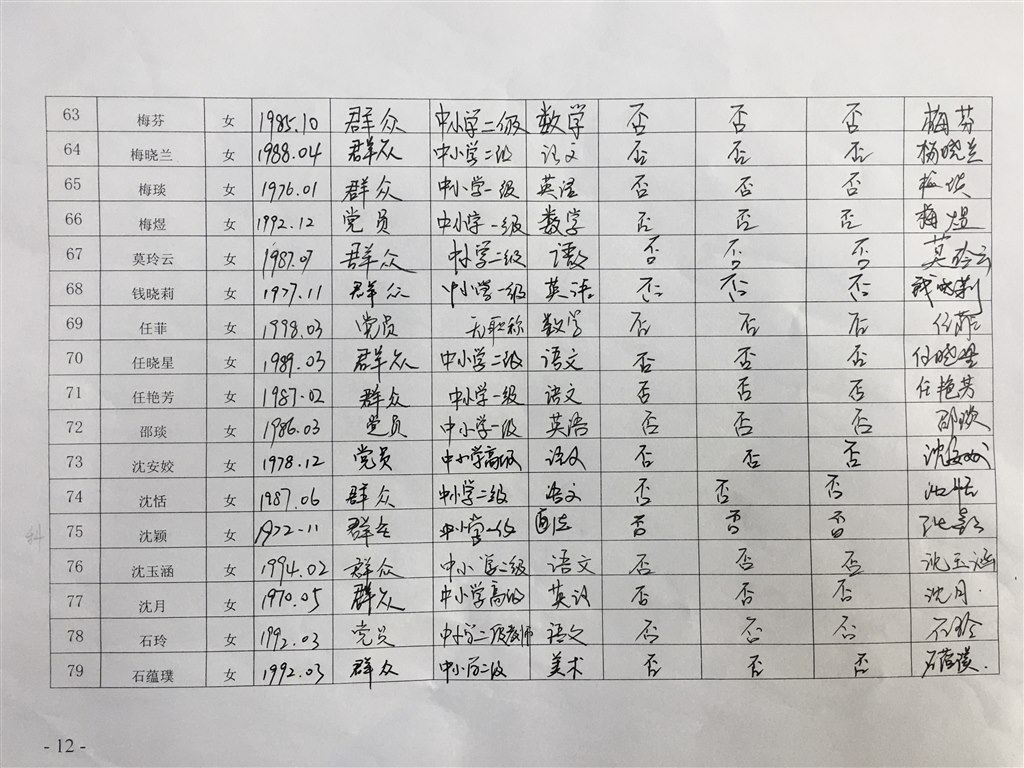 63 梅芬 女 1985.10 群众 中小学二级 数学 否 否 否 梅芬
64 梅晓兰 女 1988.04 群众 中小学二级 语文 否 否 否 梅晓兰
65 梅琰 女 1976.01 群众 中小学一级 英语 否 否 否 梅琰
66 梅煜 女 1992.12 党员 中小学一级 数学 否 否 否 梅煜
67 莫玲云 女 1987.07 群众 中小学二级 语数 否 否 否 莫玲云
68 钱晓莉 女 1977.11 群众 中小学一级 英语 否 否 否 钱晓莉
69 任菲 女 1998.03 党员 无职称 数学 否 否 否 任菲
70 任晓星 女 1989.03 群众 中小学二级 语文 否 否 否 任晓星
71 任艳芳 女 1987.02 群众 中小学一级 语文 否 否 否 任艳芳
72 邵琰 女 1986.03 党员 中小学一级 英语 否 否 否 邵琰
73 沈安姣 女 1978.12 党员 中小学高级 语文 否 否 否 沈安姣
74 沈恬 女 1987.06 群众 中小学二级 语文 否 否 否 沈恬
75 沈颖 女 1972.11 群众 中小学一级 否 否 否 沈颖
76 沈玉涵 女 1994.02 群众 中小学二级 语文 否 否 否 沈玉涵
77 沈月 女 1970.05 群众 中小学高级 英语 否 否 否 沈月.
78 石玲 女 1992.03 党员 中小学二级教师 语文 否 否 否 石玲
79 石蕴璞 女 1992.03 群众 中小学二级 美术 否 否 否 石蕴璞.
- 12 -